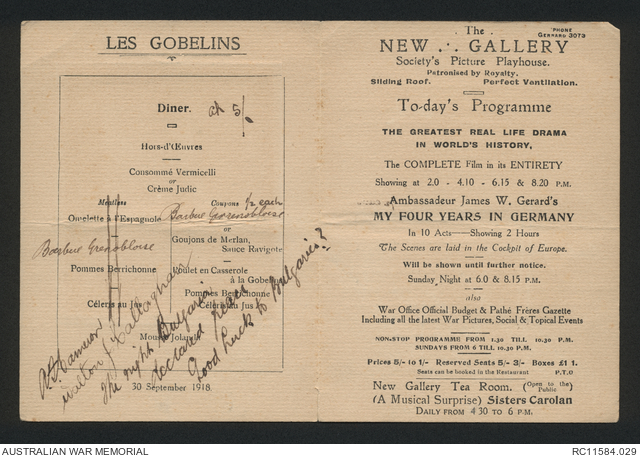 LES GOBELINS
Diner. at 5/-
Hors-d'Œuvres
Consommé Vermicelli
or
Crème Judic
Meatless
Coupons ½ each
Omelette à l'Espagnole
Barbue Grenobloise
or
Goujons de Merlan,
Sauce Ravigote
Barbue Grenobloise
Pommes Berrichonne
Poulet en Casserole
à la Gobelins
Pommes Berrichonne
Céleris au Jus
Céleris au Jus
30 September 1918.
The night Bulgaria
declared peace
Good luck to Bulgaria?
The
'PHONE
GERRARD 3073
NEW .·. GALLERY
Society's Picture Playhouse.
Patronised by Royalty.
Sliding Roof. Perfect Ventilation.
To-day's Programme
THE GREATEST REAL LIFE DRAMA
IN WORLD'S HISTORY,
The COMPLETE Film in its ENTIRETY
Showing at 2.0 - 4.10 - 6.15 & 8.20 P.M.
Ambassadeur James W. Gerard's
MY FOUR YEARS IN GERMANY
In 10 Acts—Showing 2 Hours
The Scenes are laid in the Cockpit of Europe.
Will be shown until further notice.
Sunday Night at 6.0 & 8.15 P.M.
also
War Office Official Budget & Pathé Frères Gazette
Including all the latest War Pictures, Social & Topical Events
NON-STOP PROGRAMME FROM 1.30 TILL 10.30 P.M.
SUNDAYS FROM 6 TILL 10.30 P.M.
Prices 5/- to 1/- Reserved Seats 5/- 3/- Boxes £1 1.
Seats can be booked in the Restaurant P.T.O
New Gallery Tea Room. (Open to the Public)
(A Musical Surprise) Sisters Carolan
DAILY FROM 4 30 TO 6 P.M.
AUSTRALIAN WAR MEMORIAL
RC11584.029